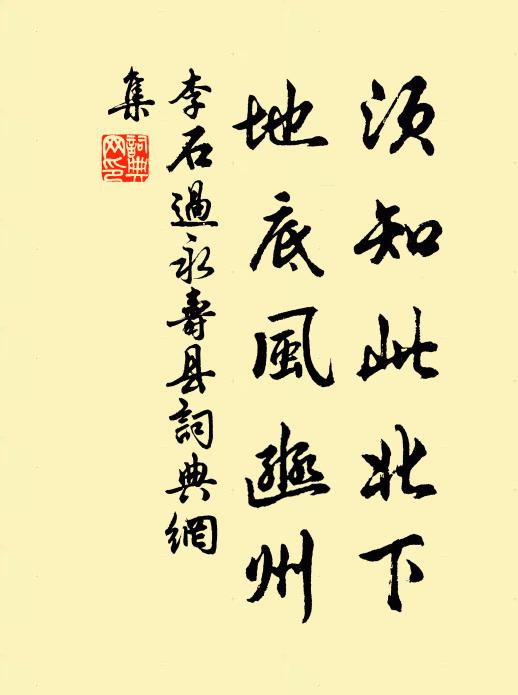 須知此北下
地底風豳州
李石過永壽县詞典網
集
詞典
网印